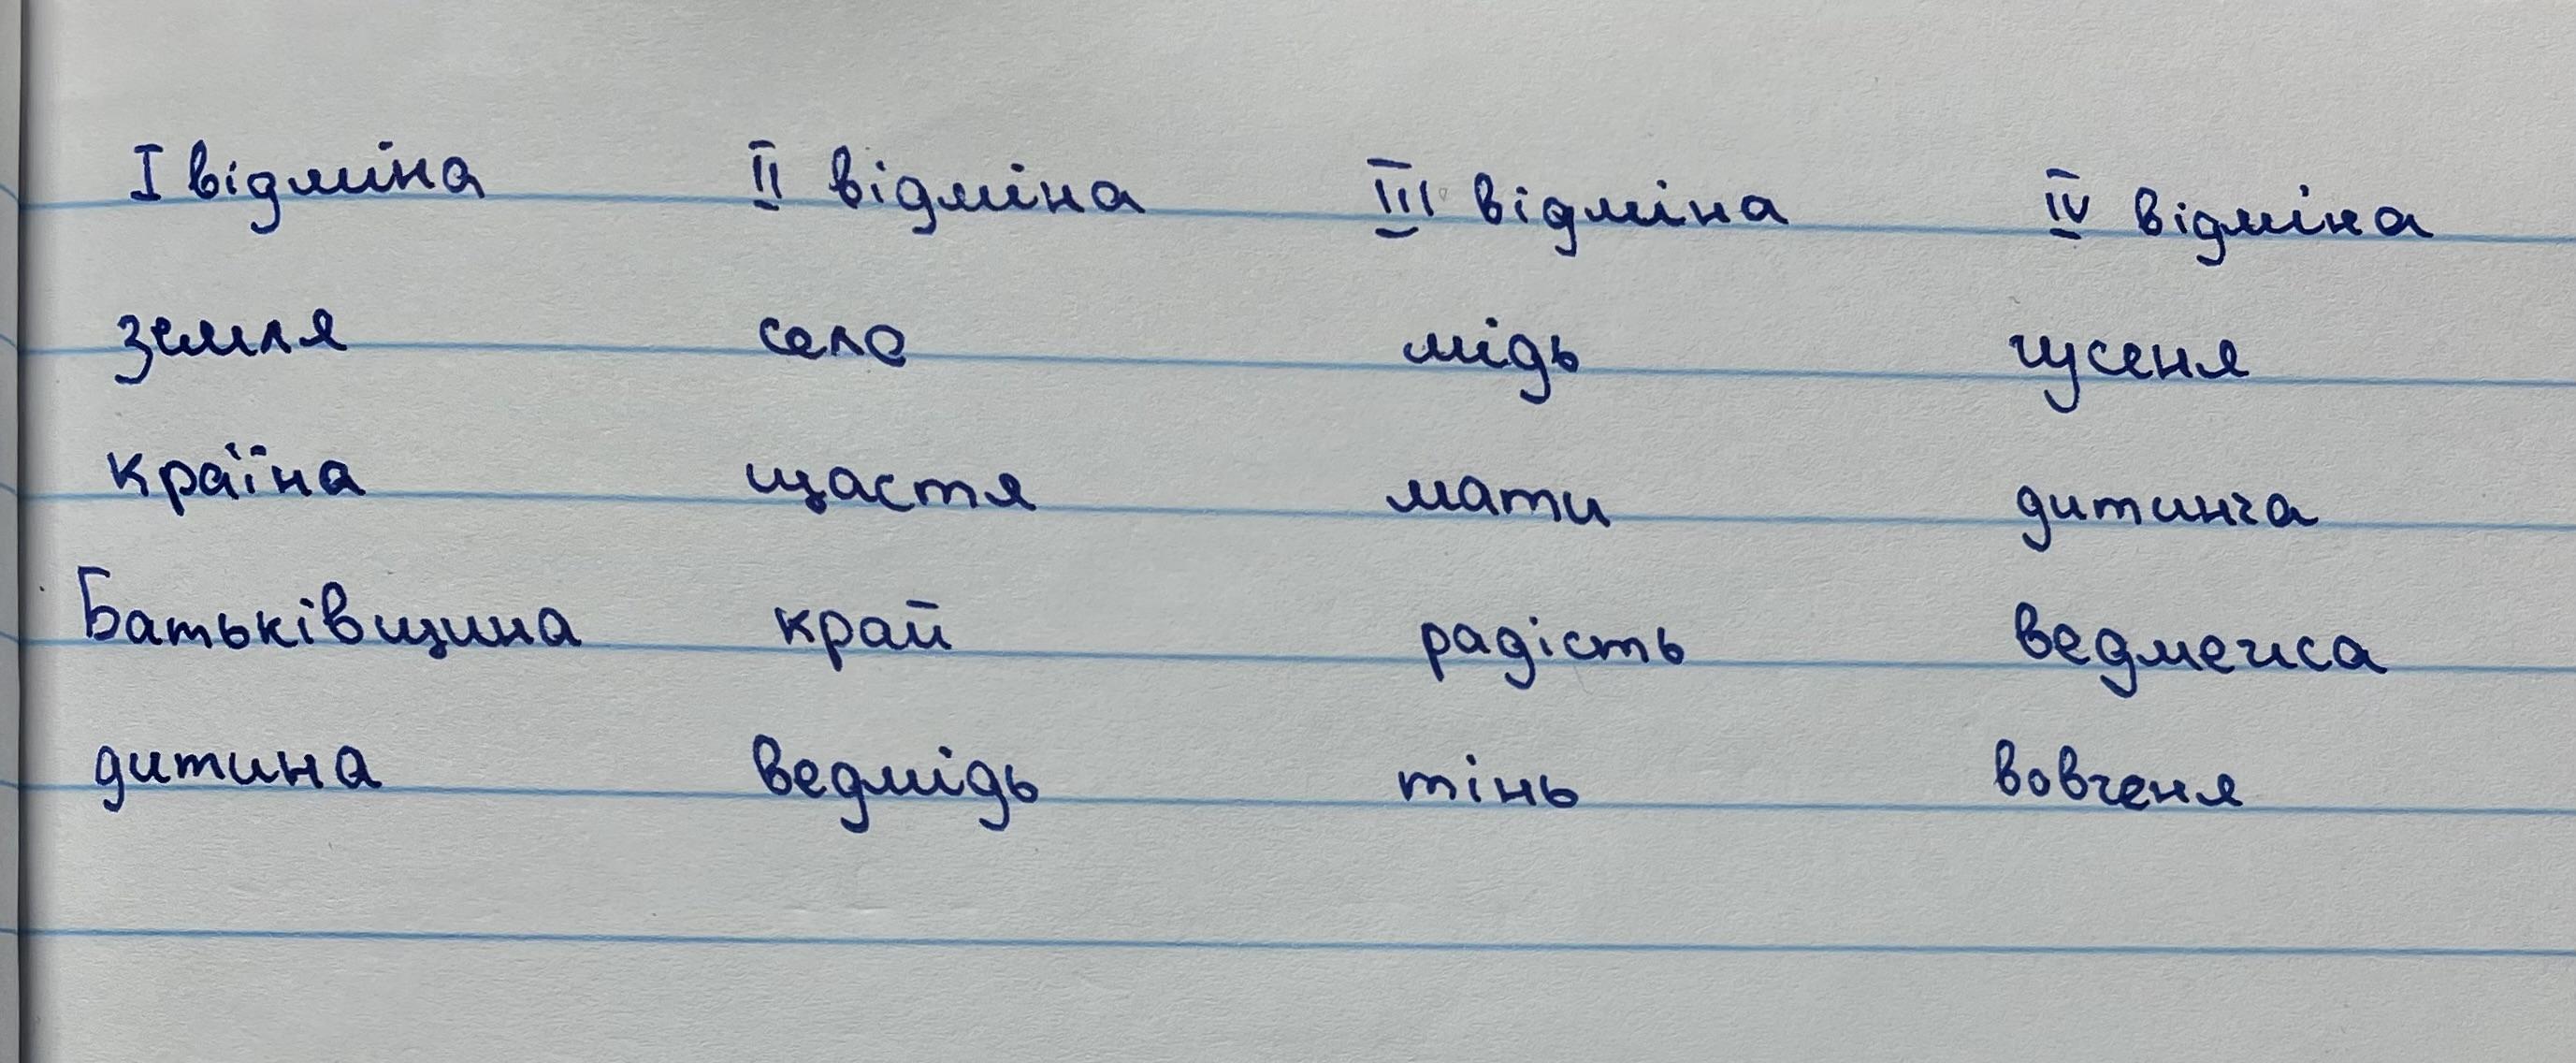 I відміна II відміна III відміна IV відміна
земля село мідь гусеня
країна щастя мати дитинча
Батьківщина край радість ведмежа
дитина ведмідь тінь вовченя